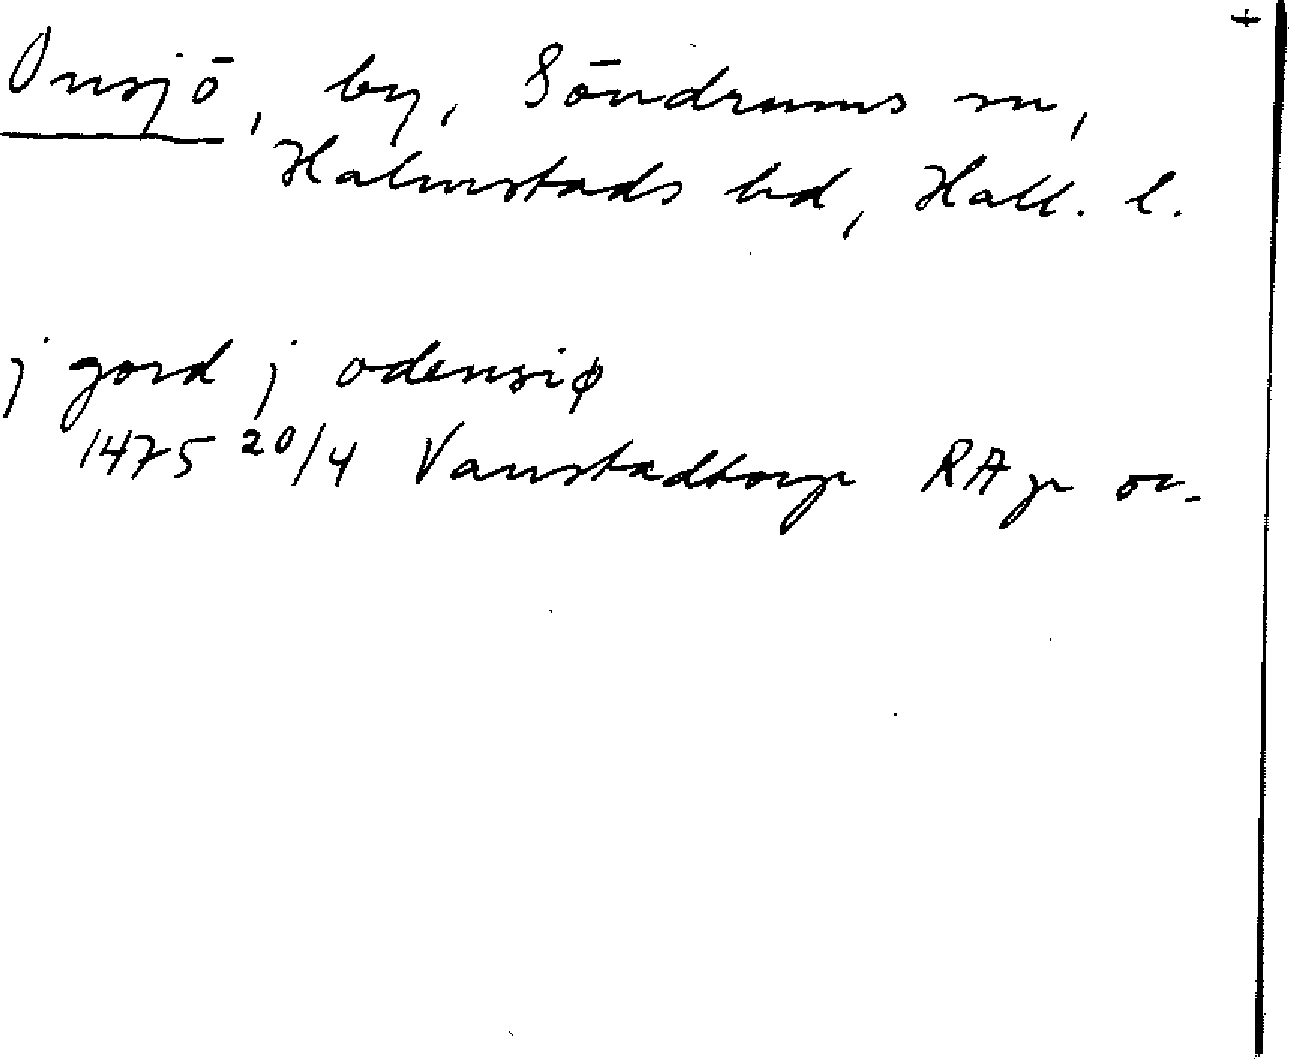 +
Onsjö, by, Söndrums sn,
Halmstads hd, Hall. l.
j gord j odensiø
1475 20/4 Vanstadtorp RA p or.